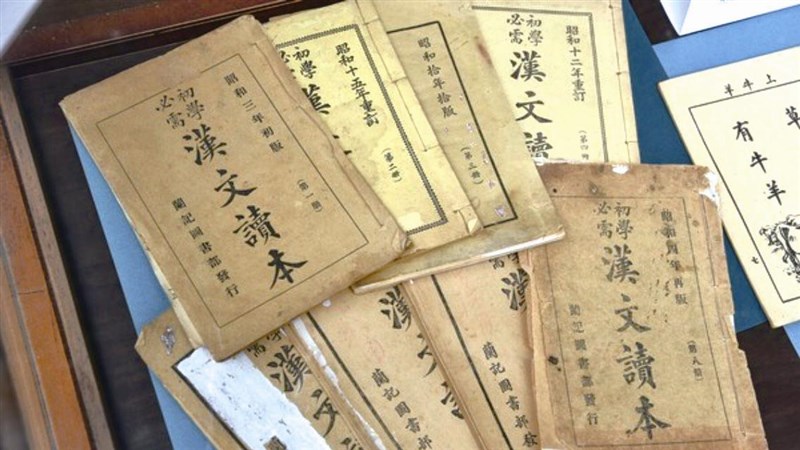 昭和三年初版
初學
必需
漢文讀本
(第一冊)
蘭記圖書部發行
昭和十五年重訂
初學
必需
漢
(第二冊)
昭和拾年拾版
(第三冊)
昭和十二年重訂
初學
必需
漢文讀
(第四冊
上牛羊
草
有牛羊
七
昭和四年再版
初學
必需
漢文讀本
(第八冊)
蘭記圖書部發行
需
漢文
漢
蘭記圖書部
漢
蘭記圖書部發